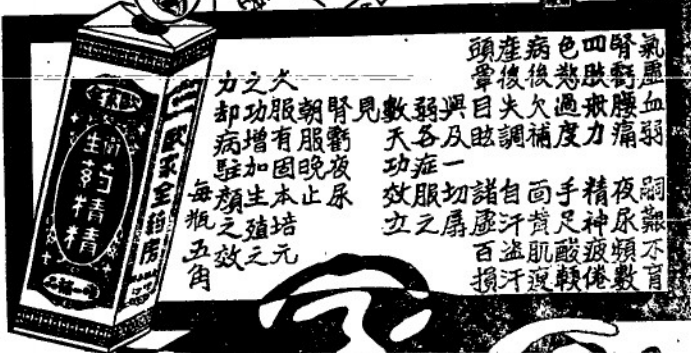 氣虛血弱 嗣艱不育
腎虧腰痛 夜尿頻數
四肢疲力 精神疲倦
色慾過度 手足酸輭
病後欠補 面黃肌瘦
產後失調 自汗盜汗
頭暈目眩 諸虛百損
與及一切孱
弱各症服之
數天功效立
見
腎虧夜尿
朝服晚止
久服有固本培元
之功增加生殖之
力却病駐顏之效
每瓶五角
歐家全药房
歐家全
生药精精